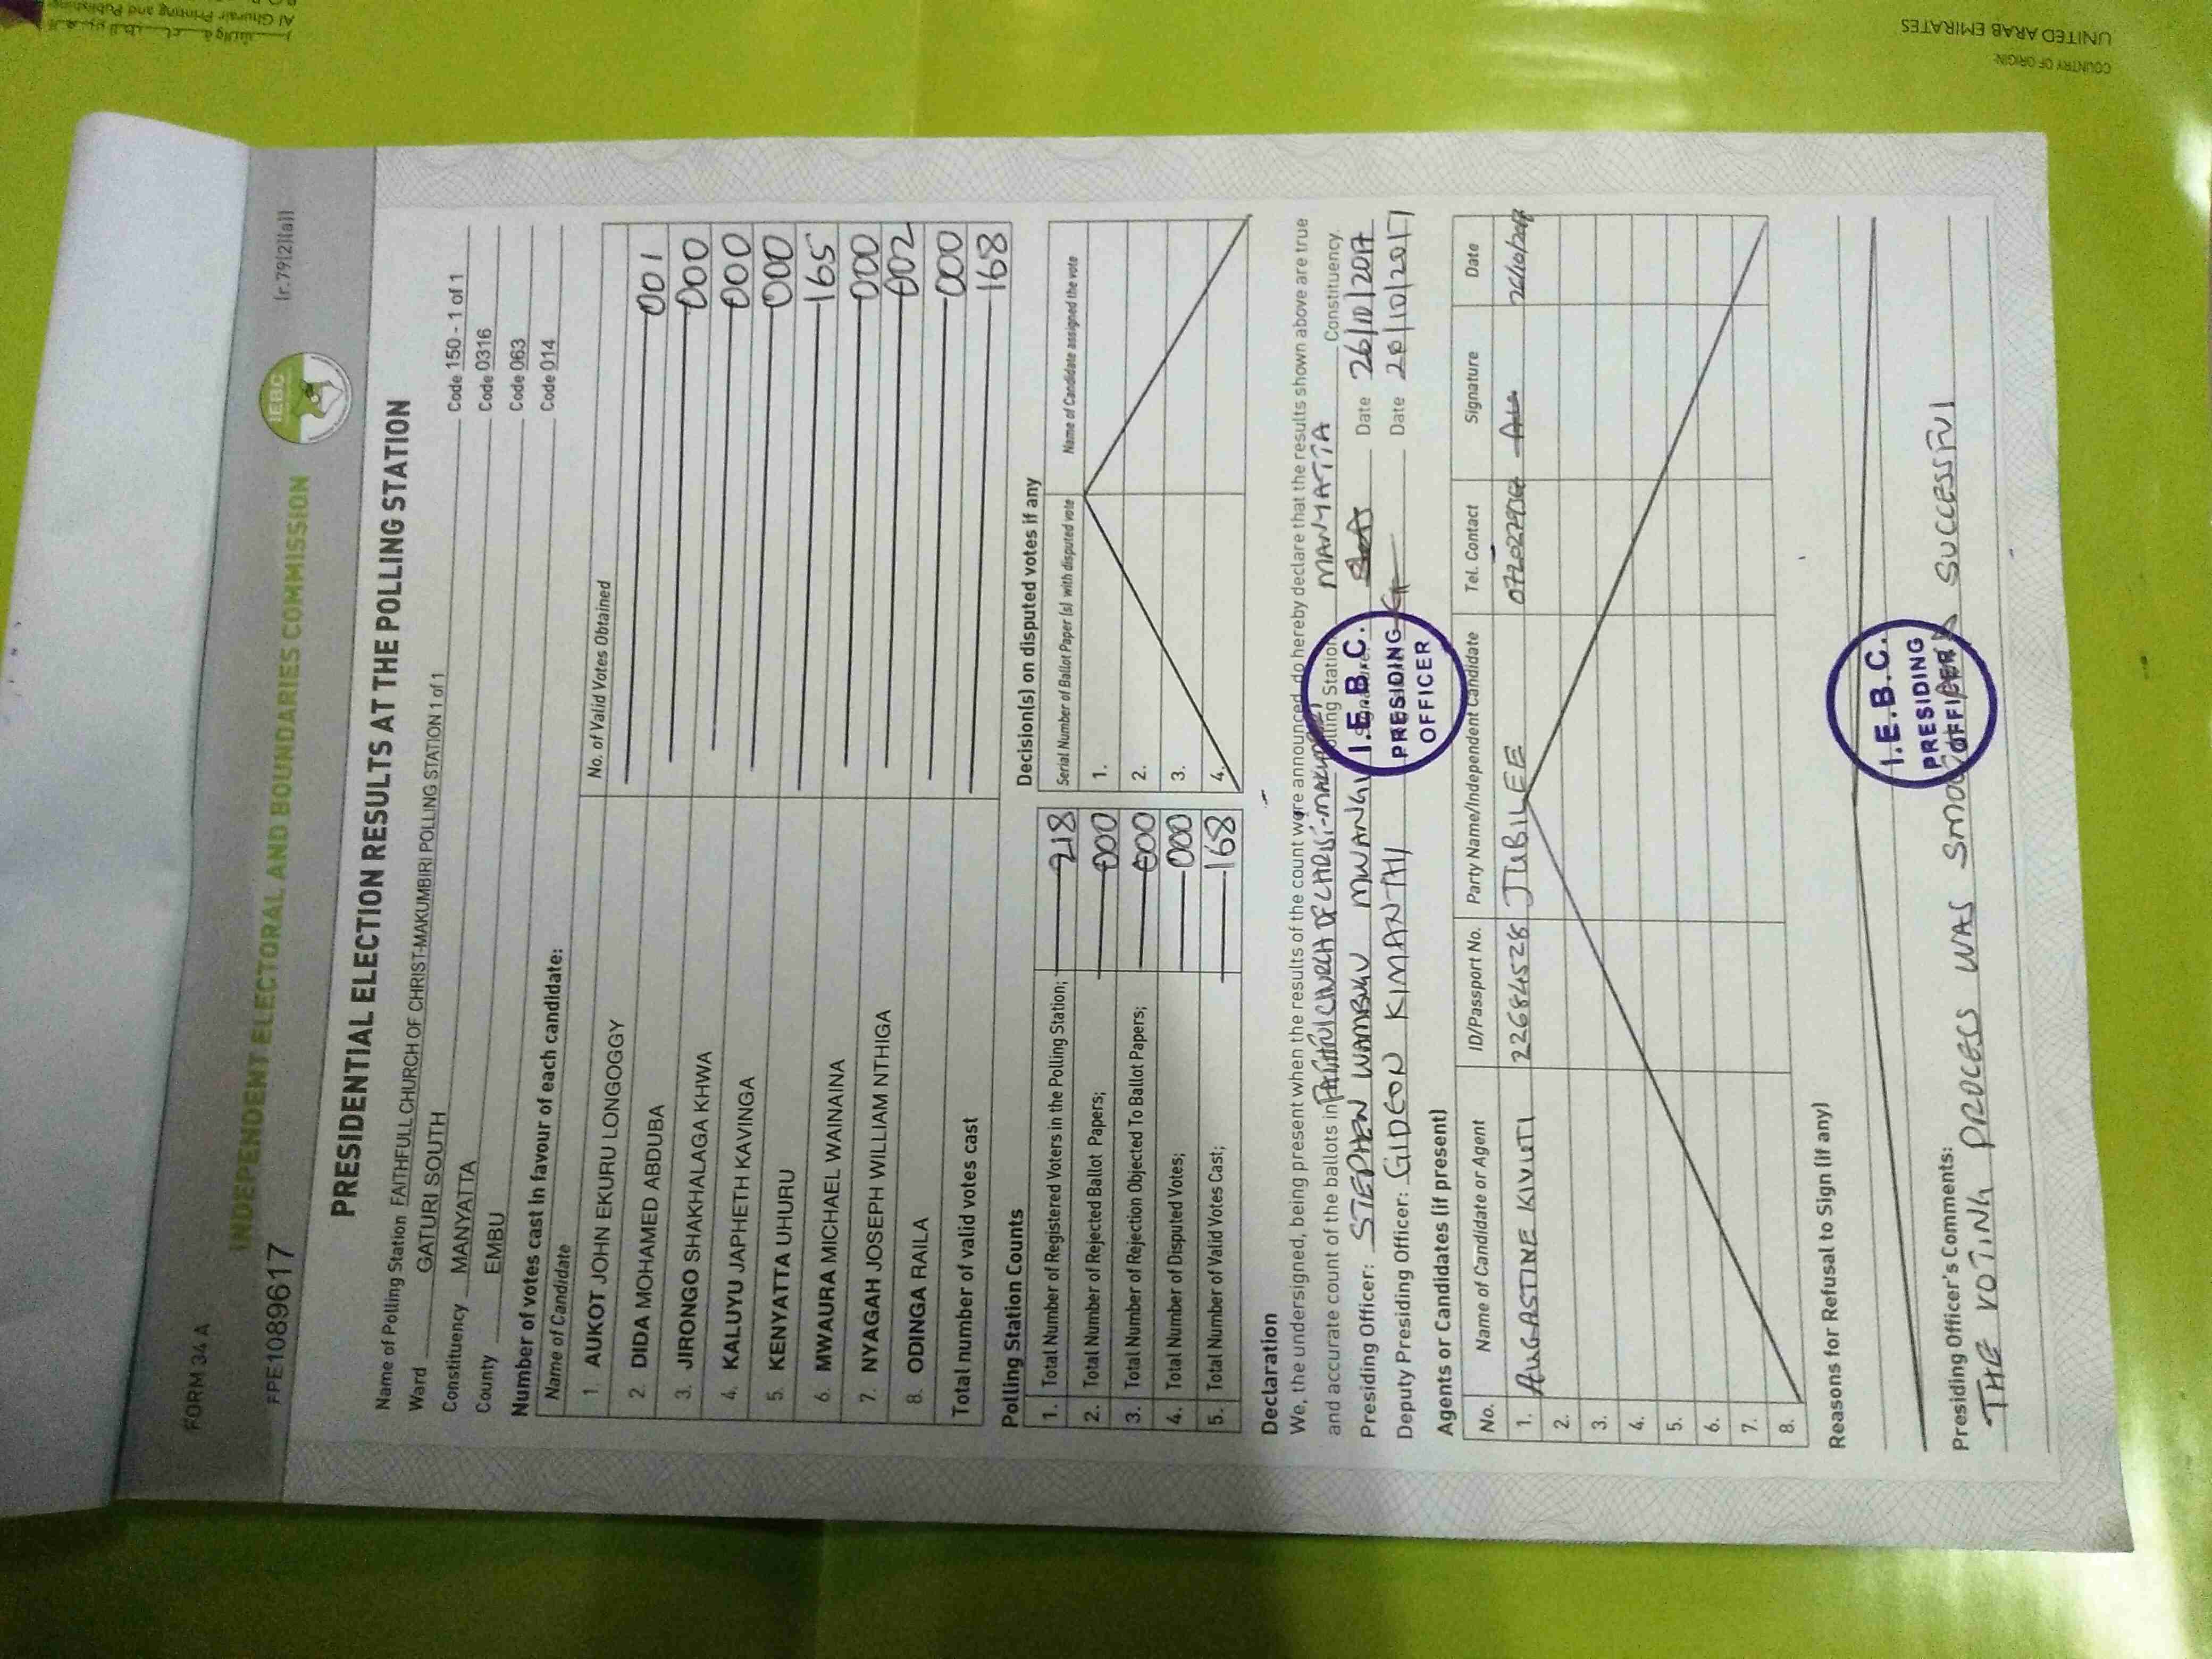 Al Ghurair Printing and Publishing
COUNTRY OF ORIGIN:
UNITED ARAB EMIRATES
FORM 34 A
INDEPENDENT ELECTORAL AND BOUNDARIES COMMISSION
IEBC
FPE1089617 [r.79(2)(a)]
PRESIDENTIAL ELECTION RESULTS AT THE POLLING STATION
Name of Polling Station FAITHFULL CHURCH OF CHRIST-MAKUMBIRI POLLING STATION 1 of 1 Code 150 - 1 of 1
Ward GATURI SOUTH Code 0316
Constituency MANYATTA Code 063
County EMBU Code 014
Number of votes cast in favour of each candidate:
Name of Candidate No. of Valid Votes Obtained
1. AUKOT JOHN EKURU LONGOGGY 001
2. DIDA MOHAMED ABDUBA 000
3. JIRONGO SHAKHALAGA KHWA 000
4. KALUYU JAPHETH KAVINGA 000
5. KENYATTA UHURU 165
6. MWAURA MICHAEL WAINAINA 000
7. NYAGAH JOSEPH WILLIAM NTHIGA 002
8. ODINGA RAILA 000
Total number of valid votes cast 168
Polling Station Counts
1. Total Number of Registered Voters in the Polling Station; 218
2. Total Number of Rejected Ballot Papers; 000
3. Total Number of Rejection Objected To Ballot Papers; 000
4. Total Number of Disputed Votes; 000
5. Total Number of Valid Votes Cast; 168
Decision(s) on disputed votes if any
Serial Number of Ballot Paper (s) with disputed vote Name of Candidate assigned the vote
1.
2.
3.
4.
Declaration
We, the undersigned, being present when the results of the count were announced, do hereby declare that the results shown above are true
and accurate count of the ballots in FAITHFUL CHURCH OF CHRIST-MAKUMBIRI Polling Station MANYATTA Constituency.
Presiding Officer: STEPHEN WAMBUGU MWANGI Signature: Date 26/10/2017
Deputy Presiding Officer: GIDEON KIMANTHI Date 26/10/2017
I.E.B.C.
PRESIDING
OFFICER
Agents or Candidates (if present)
No. Name of Candidate or Agent ID/Passport No. Party Name/Independent Candidate Tel. Contact Signature Date
1. AUGASTINE KIVUTI 22684528 JUBILEE 26/10/2017
2.
3.
4.
5.
6.
7.
8.
Reasons for Refusal to Sign (if any)
I.E.B.C.
PRESIDING
OFFICER
Presiding Officer's Comments:
THE VOTING PROCESS WAS SMOOTH AND SUCCESSFUL